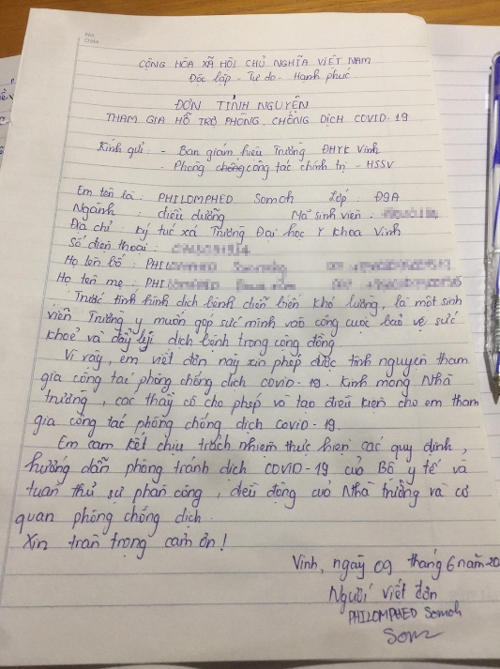 CỘNG HÒA XÃ HỘI CHỦ NGHĨA VIỆT NAM
Độc lập - Tự do - Hạnh phúc
ĐƠN TÌNH NGUYỆN
THAM GIA HỖ TRỢ PHÒNG, CHỐNG DỊCH COVID-19
Kính gửi - Ban giám hiệu Trường ĐHYK Vinh
- Phòng công tác chính trị - HSSV
Em tên là : PHILOMPHED Somoh Lớp : Đ9A
Ngành : điều dưỡng Mã sinh viên :
Địa chỉ : Ký túc xá Trường Đại học Y Khoa Vinh
Số điện thoại :
Họ tên bố : PHIL
Họ tên mẹ : PHIL
Trước tình hình dịch bệnh diễn biến khó lường, là một sinh
viên Trường y muốn góp sức mình vào công cuộc bảo vệ sức
khoẻ và đẩy lùi dịch bệnh trong cộng đồng.
Vì vậy, em viết đơn này xin phép được tình nguyện tham
gia công tác phòng chống dịch covid-19. Kính mong Nhà
trường, các thầy cô cho phép và tạo điều kiện cho em tham
gia công tác phòng chống dịch covid-19.
Em cam kết chịu trách nhiệm thực hiện các quy định,
hướng dẫn phòng tránh dịch COVID-19 của Bộ y tế và
tuân thủ sự phân công, điều động của Nhà trường và cơ
quan phòng chống dịch.
Xin trân trọng cảm ơn!
Vinh, ngày 09 tháng 6 năm 20
Người viết đơn
PHILOMPHED Somoh